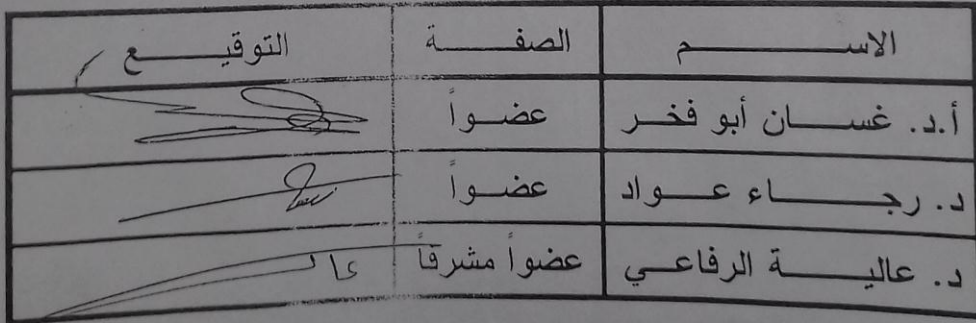 الاسم الصفة التوقيع
أ.د. غسان أبو فخر عضواً
د. رجاء عواد عضواً
د. عالية الرفاعي عضواً مشرفاً